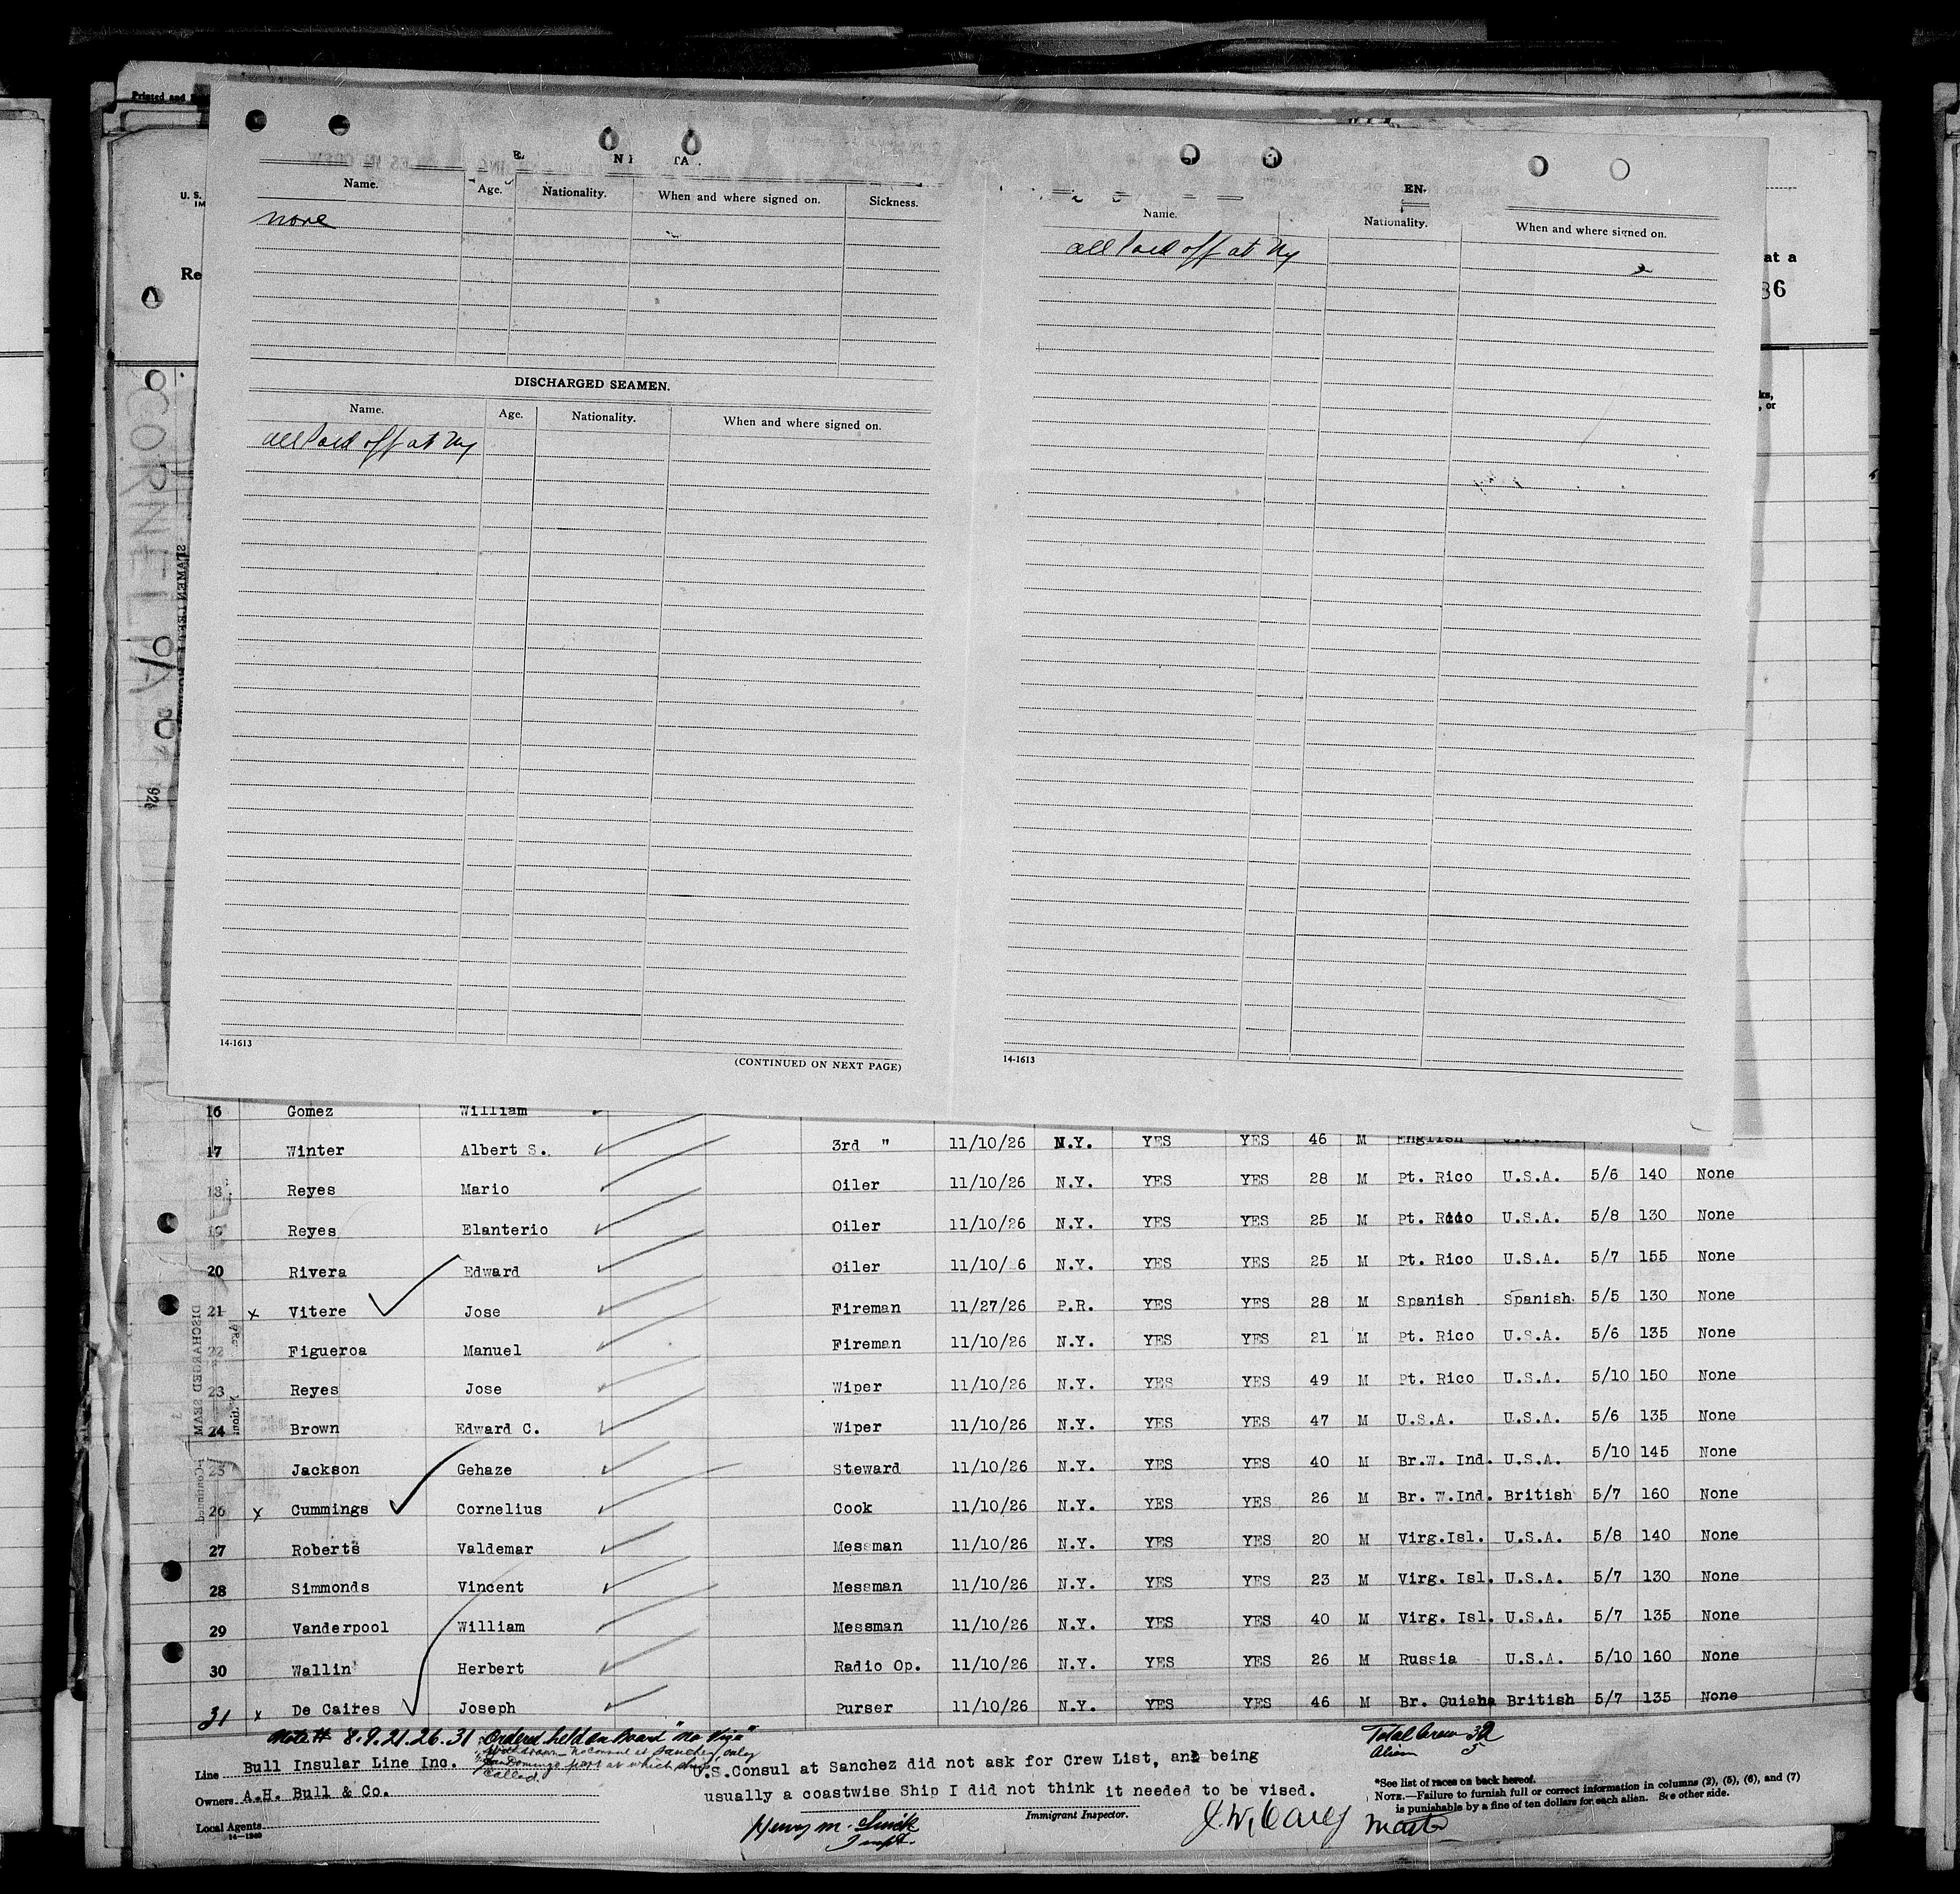 Printed and
U. S.
IM
Re
Name. Age. Nationality. When and where signed on. Sickness.
none
DISCHARGED SEAMEN.
Name. Age. Nationality. When and where signed on.
all paid off at Ny
14-1613
(CONTINUED ON NEXT PAGE)
EN.
Name. Nationality. When and where signed on.
all paid off at Ny
14-1613
at a
86
ks,
, or
CORNELIA
16 Gomez William
17 Winter Albert S. 3rd " 11/10/26 N.Y. YES YES 46 M English
18 Reyes Mario Oiler 11/10/26 N.Y. YES YES 28 M Pt. Rico U.S.A. 5/6 140 None
19 Reyes Elanterio Oiler 11/10/26 N.Y. YES YES 25 M Pt. Rico U.S.A. 5/8 130 None
20 Rivera Edward Oiler 11/10/ 6 N.Y. YES YES 25 M Pt. Rico U.S.A. 5/7 155 None
21 x Vitere Jose Fireman 11/27/26 P.R. YES YES 28 M Spanish Spanish 5/5 130 None
22 Figueroa Manuel Fireman 11/10/26 N.Y. YES YES 21 M Pt. Rico U.S.A. 5/6 135 None
23 Reyes Jose Wiper 11/10/26 N.Y. YES YES 49 M Pt. Rico U.S.A. 5/10 150 None
24 Brown Edward C. Wiper 11/10/26 N.Y. YES YES 47 M U.S.A. U.S.A. 5/6 135 None
25 Jackson Gehaze Steward 11/10/26 N.Y. YES YES 40 M Br.W. Ind. U.S.A. 5/10 145 None
26 x Cummings Cornelius Cook 11/10/26 N.Y. YES YES 26 M Br. W.Ind. British 5/7 160 None
27 Roberts Valdemar Messman 11/10/26 N.Y. YES YES 20 M Virg.Isl. U.S.A. 5/8 140 None
28 Simmonds Vincent Messman 11/10/26 N.Y. YES YES 23 M Virg. Isl. U.S.A. 5/7 130 None
29 Vanderpool William Messman 11/10/26 N.Y. YES YES 40 M Virg. Isl. U.S.A. 5/7 135 None
30 Wallin Herbert Radio Op. 11/10/26 N.Y. YES YES 26 M Russia U.S.A. 5/10 160 None
31 x De Caires Joseph Purser 11/10/26 N.Y. YES YES 46 M Br. Guiana British 5/7 135 None
Note # 8.9.21.26.31 Ordered held on Board "No Visa"
Withdrawn - No Consul at Sanchez, only
San Domingo port at which ship
called
Total Crew 32
Alien 5
Line Bull Insular Line Inc.
Owners A.H. Bull & Co.
Local Agents
14-1240
U.S.Consul at Sanchez did not ask for Crew List, and being
usually a coastwise Ship I did not think it needed to be vised.
Immigrant Inspector.
Henry M.
Inspt.
J.W. Carey Master
*See list of races on back hereof.
NOTE.—Failure to furnish full or correct information in columns (2), (5), (6), and (7)
is punishable by a fine of ten dollars for each alien. See other side.